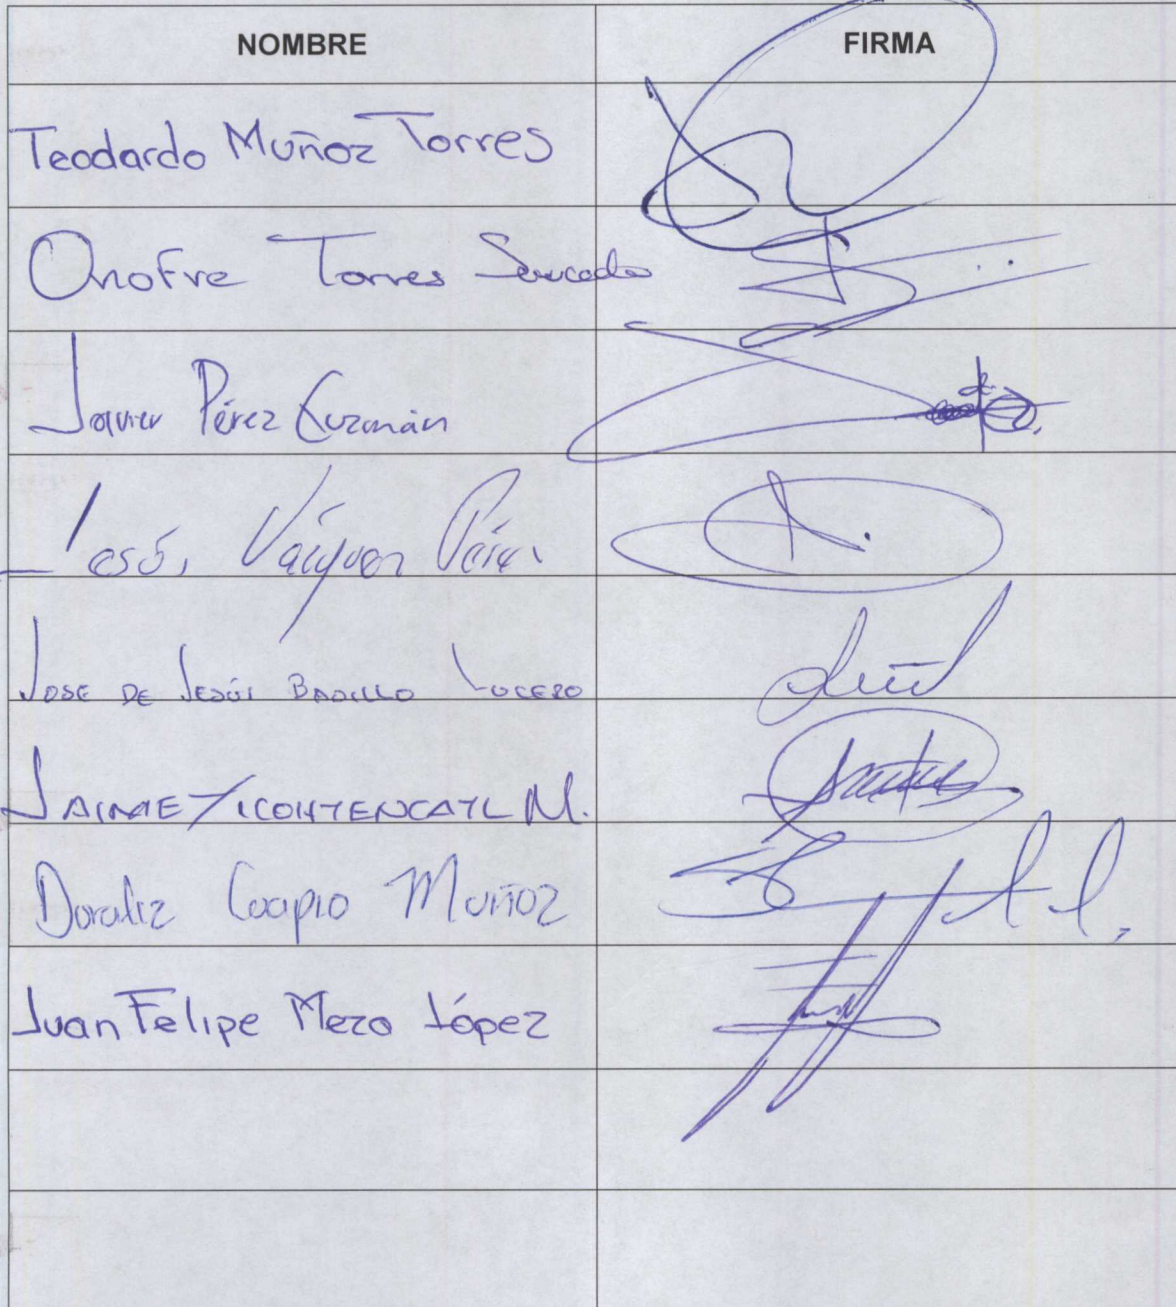 NOMBRE FIRMA
Teodardo Muñoz Torres
Onofre Torres
Javier Pérez Guzmán
Vázquez Pérez
JOSE DE JESÚS BADILLO LUCERO
JAIME XICOHTENCATL M.
Doraliz Coapio Muñoz
Juan Felipe Mezo López